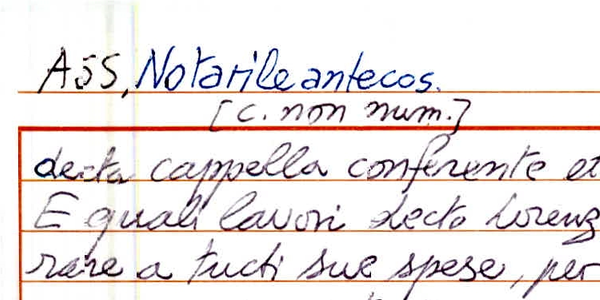 ASS, Notarile antecos.
[c. non num.]
decta cappella conferente et
E quali lavori decto Lorenz
rare a tucti sue spese, per